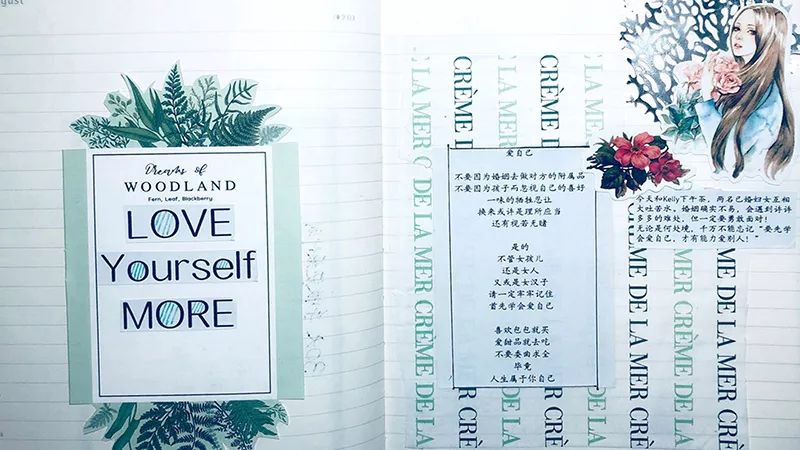 gust
Dreams of
WOODLAND
Fern, Leaf, Blackberry
LOVE
Yourself
MORE
LA MER CRÈME DE LA
CRÈME DE LA MER CRÈ
LA MER CRÈME DE LA
CRÈME DE LA MER CRÈ
LA MER CRÈME DE LA
CRÈME DE LA MER CRÈ
ÈME DE LA MER CRÈ
爱自己
不要因为婚姻去做对方的附属品
不要因为孩子而忽视自己的喜好
一味的牺牲忍让
换来或许是理所应当
还有视若无睹
是的
不管女孩儿
还是女人
又或是女汉子
请一定牢牢记住
首先学会爱自己
喜欢包包就买
爱甜品就去吃
不要委曲求全
毕竟
人生属于你自己
今天和Kelly下午茶，两名已婚妇女互相
大吐苦水，婚姻确实不易，会遇到许许
多多的难处，但一定要勇敢面对！
无论是何处境，千万不能忘记“要先学
会爱自己，才有能力爱别人！”